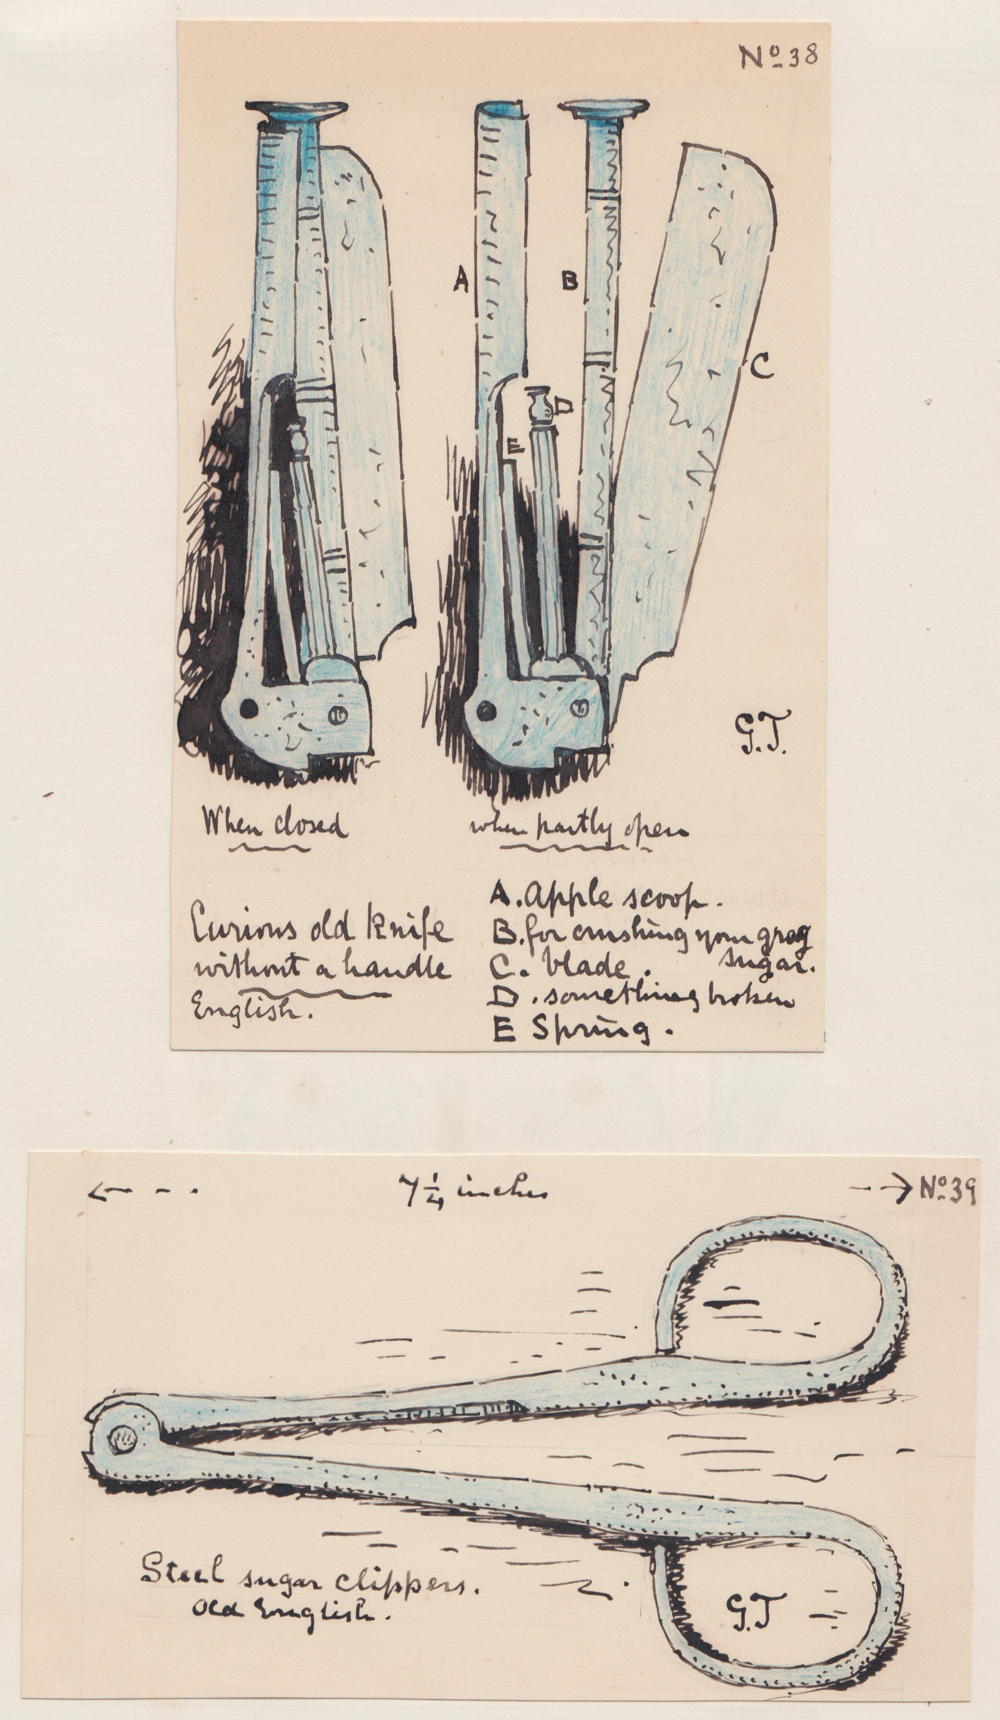 Nº 38
A
B
C
D
E
G.T.
When closed
when partly open
Curious old knife
without a handle
English.
A. Apple scoop.
B. for crushing your grog
sugar.
C. blade.
D. something broken
E Spring.
7 1/4 inches
Nº 39
Steel sugar clippers.
Old English.
G.T